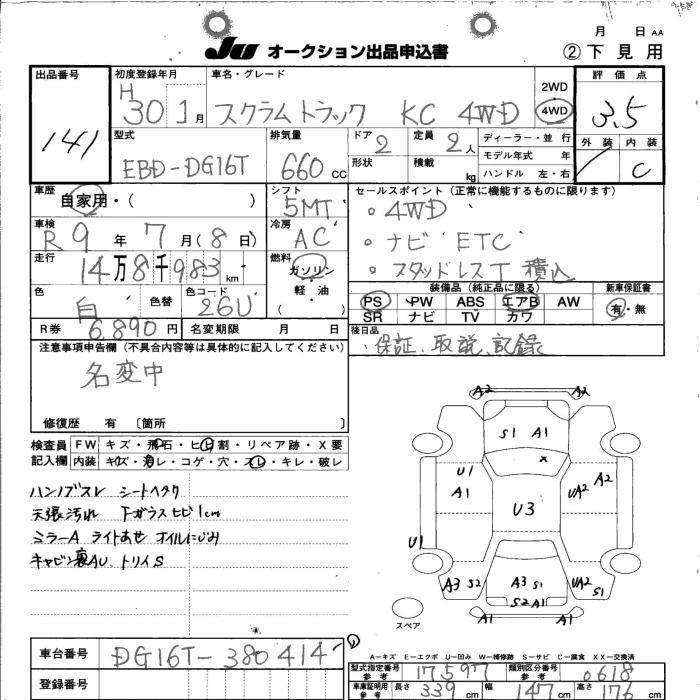 月 日 AA
JU オークション出品申込書 ②下見用
出品番号 初度登録年月 車名・グレード 評価点
141 H30 1月 スクラムトラック KC 4WD 2WD 4WD 3.5
型式 排気量 ドア 定員 ディーラー・並行 外装 内装
EBD-DG16T 660 CC 2 2人 モデル年式 年 C
形状 積載 kg ハンドル 左・右
車歴 自家用・( ) シフト 5MT セールスポイント(正常に機能するものに限ります)
。4WD
車検 R9年7月(8日) 冷房 AC 。ナビ ETC
走行 14万8千983km 燃料 ガソリン 。スタッドレスT 積込
軽・油
( )
装備品(純正品に限る) 新車保証書
色 白 色替 色コード 26U PS PW ABS エアB AW 有・無
SR ナビ TV カワ
R券 6,890円 名変期限 月 日 後日品
・保証、取説、記録
注意事項申告欄(不具合内容等は具体的に記入してください)
名変中
修復歴 有 〔箇所 〕
検査員 FW キズ・飛石・ヒビ割・リペア跡・X要
記入欄 内装 キズ・汚レ・コゲ・穴・スレ・キレ・破レ
ハンノブスレ シートヘタク
天張汚れ Fガラスヒビ1cm
ミラーA ライトあせ オイルにじみ
キャビン裏AU トリイS
A2 A2
S1 A1
x
U1 A2
A1 UA2
U3
U1
A3 S2 A3 S1 UA2
S2 A1 S1
A1 A1
スペア
A-キズ E-エクボ U-凹み W-補修跡 S-サビ C-腐食 XX-交換済
車台番号 DG16T-380414
型式指定番号 参考 17597 類別区分番号 参考 0618
登録番号
車庫証明用 参考 長さ 339cm 幅 147cm 高さ 176cm